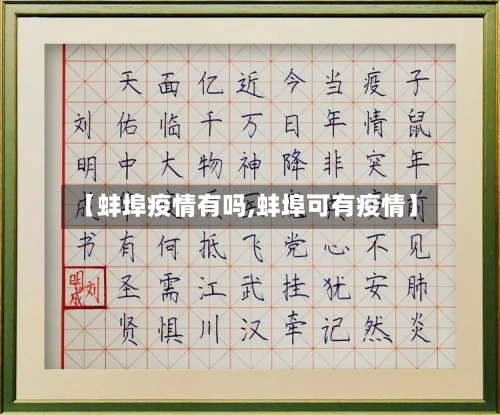 子鼠年见肺炎
疫情突不安然
当年非心犹记
今日降党挂牵
近万神飞武汉
亿千物抵江川
面临大何需惧
天佑中有圣贤
刘明成书
刘明成
【蚌埠疫情有吗,蚌埠可有疫情】